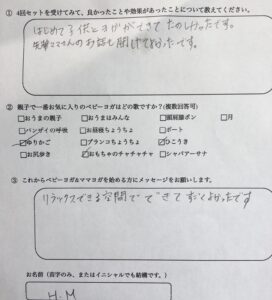 ① 4回セットを受けてみて、良かったことや効果があったことについて教えてください。
はじめて子供とヨガができてたのしかったです。
先輩ママさんのお話も聞けてよかったです。
② 親子で一番お気に入りのベビーヨガはどの歌ですか?(複数回答可)
□おうまの親子 □おうまはみんな □頭肩膝ポン □月
□バンザイの呼吸 □お昼寝ちょうちょ □ボート
☑ゆりかご □ブランコちょうちょ ☑ひこうき
□お尻歩き ☑おもちゃのチャチャチャ □シャバアーサナ
③ これからベビーヨガ&ママヨガを始める方にメッセージをお願いします。
リラックスできる空間でできてすごくよかったです
お名前(苗字のみ、またはイニシャルでも結構です。)
H.M